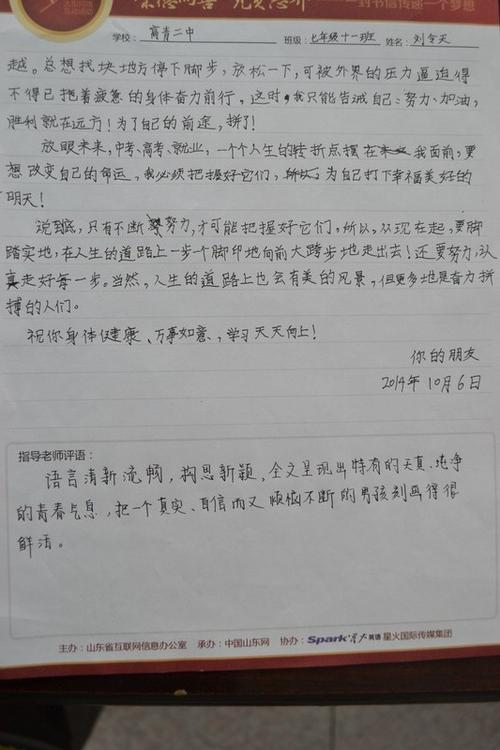 一封书信传递一个梦想
学校：高青二中 班级：七年级十一班 姓名：刘令天
越。总想找块地方停下脚步，放松一下，可被外界的压力逼迫得
不得已拖着疲惫的身体奋力前行，这时，我只能告诫自己：努力、加油，
胜利就在远方！为了自己的前途，拼了！
放眼未来，中考、高考、就业，一个个人生的转折点摆在我面前，要
想改变自己的命运，我必须把握好它们，为自己打下幸福美好的
明天！
说到底，只有不断努力，才可能把握好它们，所以，从现在起，要脚
踏实地，在人生的道路上一步一个脚印地向前大跨步地走出去！还要努力，认
真走好每一步。当然，人生的道路上也会有美的风景，但更多地是奋力拼
搏的人们。
祝你身体健康、万事如意、，学习天天向上！
你的朋友
2014年10月6日
指导老师评语：
语言清新流畅，构思新颖，全文呈现出特有的天真、纯净
的青春气息，把一个真实、自信而又烦恼不断的男孩刻画得很
鲜活。
主办：山东省互联网信息办公室 承办：中国山东网 协办：Spark星火英语 星火国际传媒集团